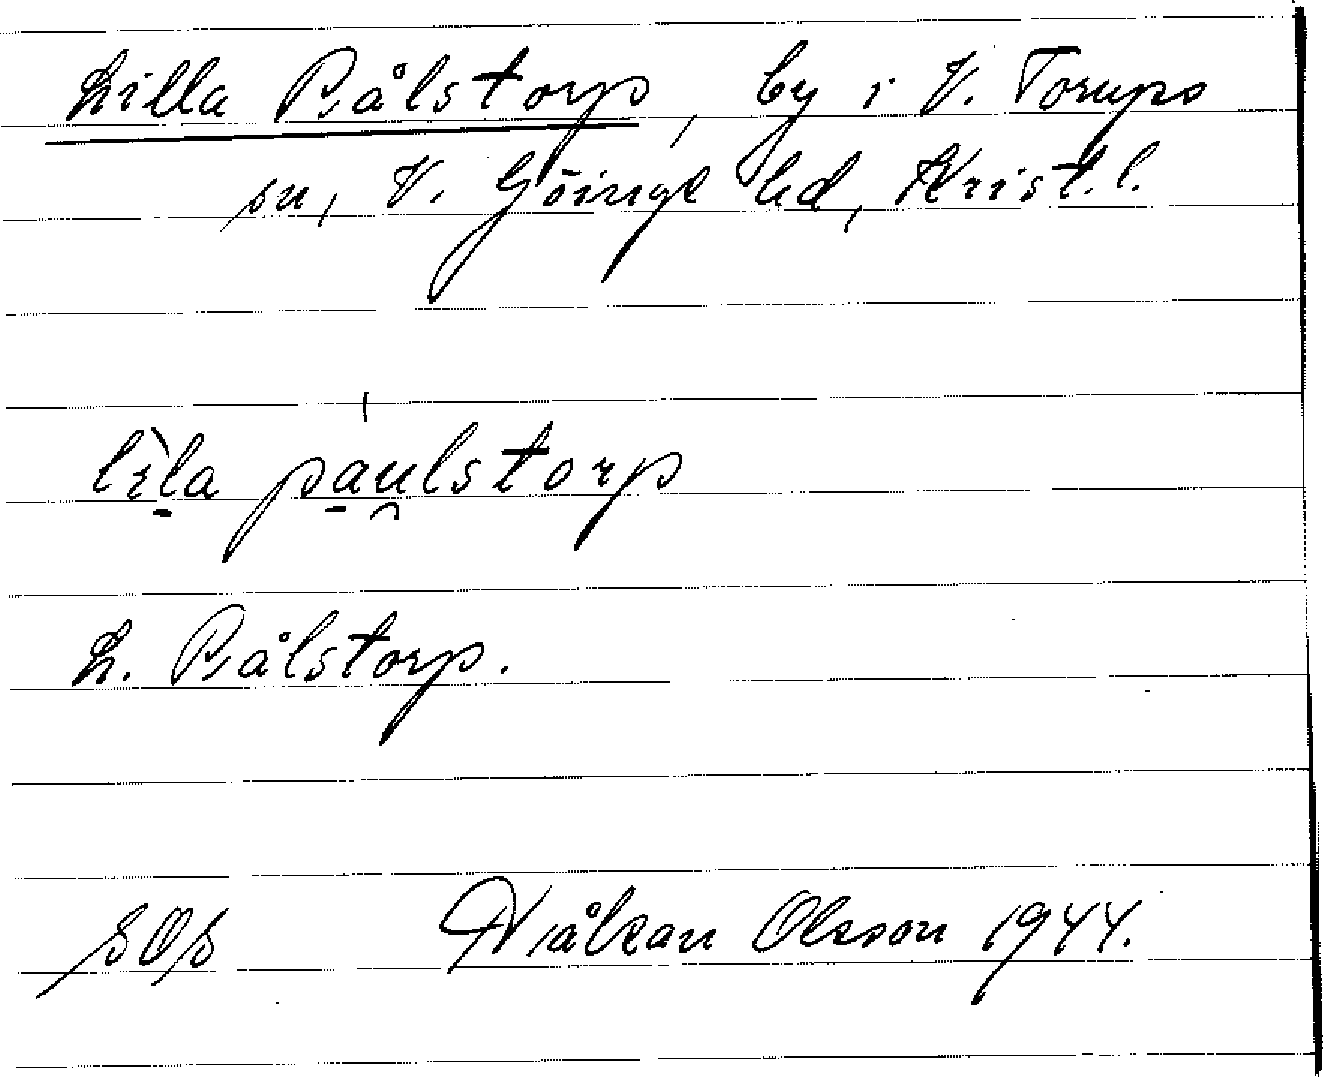 Lilla Pålstorp, by i V. Torups
sn, V. Göinge hd, Krist. l.
lìla pa̠u̯lstorp
L. Pålstorp.
SOS Håkan Olsson 1944.